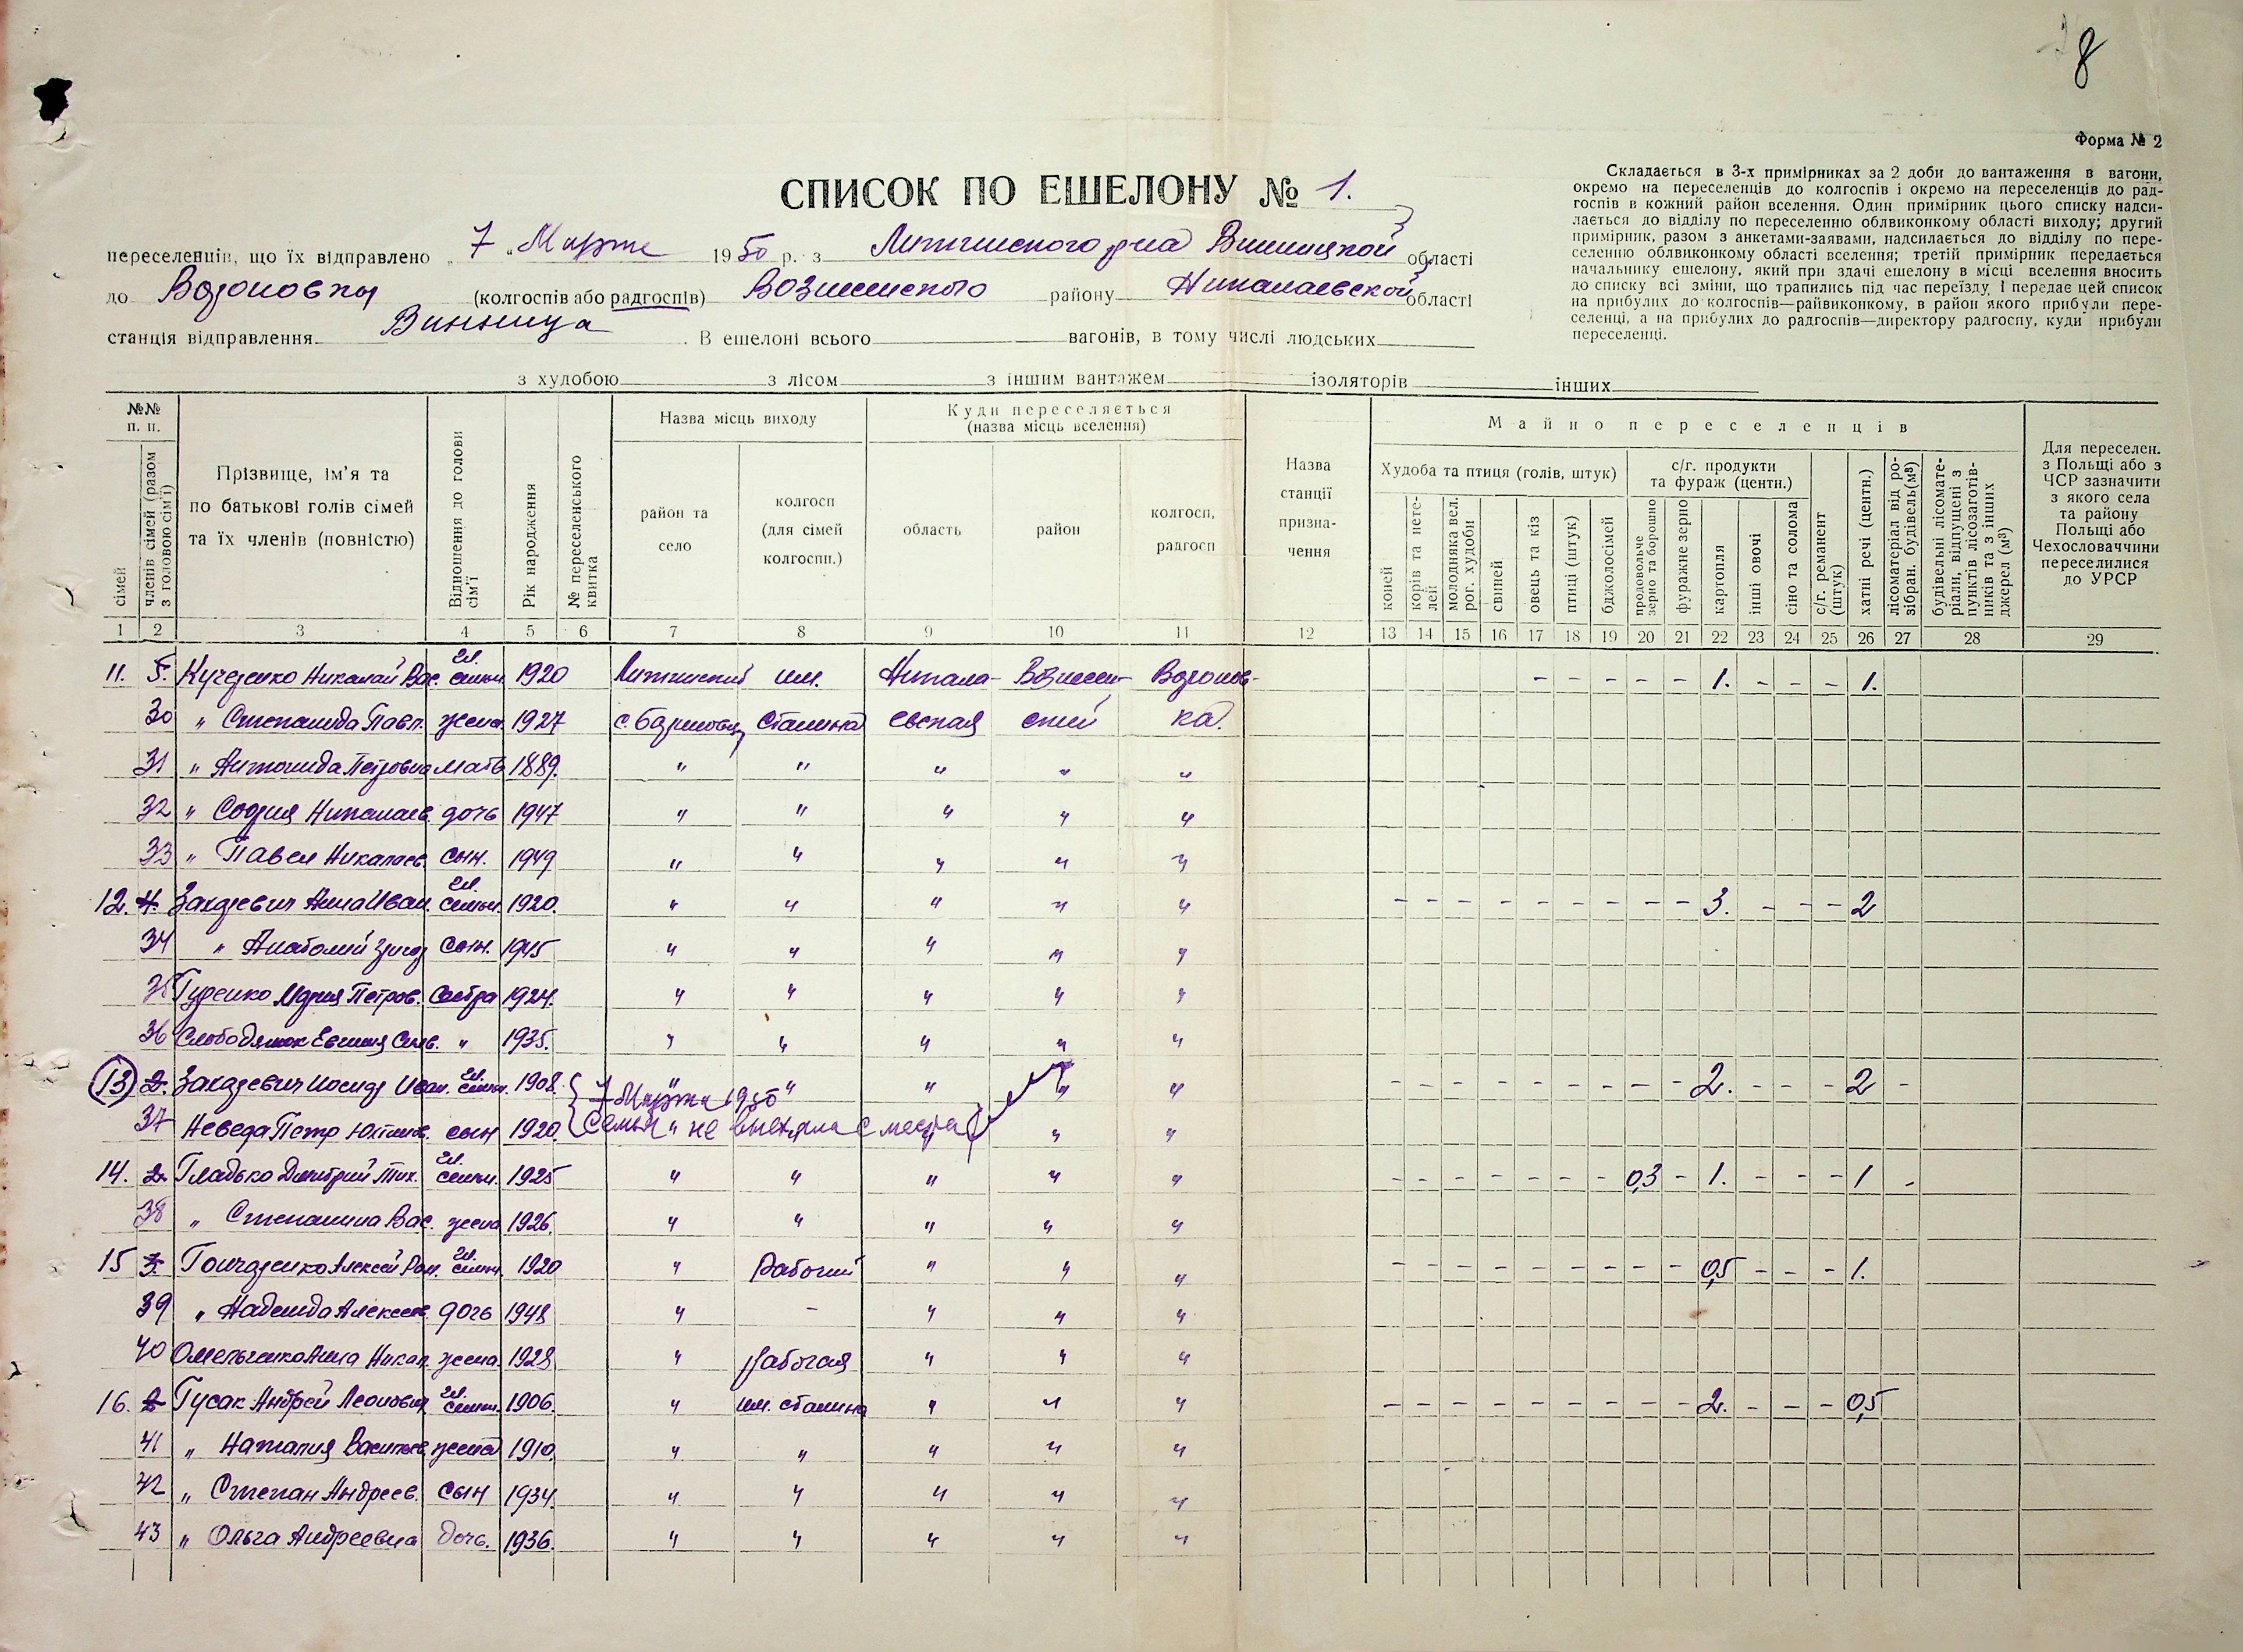 8
Форма № 2
СПИСОК ПО ЕШЕЛОНУ № 1.
переселенців, що їх відправлено „ 7 „ Марта 1950 р. з Литинского р-на Винницкой області
до Вороновки (колгоспів або радгоспів) Вознесенского району Николаевской області
станція відправлення Винница. В ешелоні всього вагонів, в тому числі людських
з худобою з лісом з іншим вантажем ізоляторів інших
Складається в 3-х примірниках за 2 доби до вантаження в вагони,
окремо на переселенців до колгоспів і окремо на переселенців до рад-
госпів в кожний район вселення. Один примірник цього списку надси-
лається до відділу по переселенню облвиконкому області виходу; другий
примірник, разом з анкетами-заявами, надсилається до відділу по пере-
селенню облвиконкому області вселення; третій примірник передається
начальнику ешелону, який при здачі ешелону в місці вселення вносить
до списку всі зміни, що трапились під час переїзду і передає цей список
на прибулих до колгоспів—райвиконкому, в район якого прибули пере-
селенці, а на прибулих до радгоспів—директору радгоспу, куди прибули
переселенці.
№№ п. п.
сімей
членів сімей (разом з головою сім'ї)
Прізвище, ім'я та
по батькові голів сімей
та їх членів (повністю)
Відношення до голови сім'ї
Рік народження
№ переселенського квитка
Назва місць виходу
район та село
колгосп (для сімей колгоспн.)
Куди переселяється
(назва місць вселення)
область
район
колгосп, радгосп
Назва станції призна-чення
Майно переселенців
Худоба та птиця (голів, штук)
коней
корів та нете-лей
молодняка вел. рог. худоби
свиней
овець та кіз
птиці (штук)
бджолосімей
с/г. продукти та фураж (центн.)
продовольче зерно та борошно
фуражне зерно
картопля
інші овочі
сіно та солома
с/г. реманент (штук)
хатні речі (центн.)
лісоматеріал від ро-зібран. будівель(м³)
будівельні лісомате-ріали, відпущені з пунктів лісозаготів-ників та з інших джерел (м³)
Для переселен.
з Польщі або з
ЧСР зазначити
з якого села
та району
Польщі або
Чехословаччини
переселилися
до УРСР
1 2 3 4 5 6 7 8 9 10 11 12 13 14 15 16 17 18 19 20 21 22 23 24 25 26 27 28 29
11. 5. Кучеренко Николай Вас. Гл. семьи 1920 Литинский им. Никола- Вознесен- Воронов- - - - - - 1. - - - 1.
30 " Степанида Павл. жена 1927 с. Сталина евская ский ка.
31 " Антонида Петровна мать 1889. " " " " "
32 " София Николаев. дочь 1947 " " " " "
33 " Павел Николаев. сын. 1949 " " " " "
12. 4. Захаревич Анна Иван. Гл. семьи. 1920. " " " " " - - - - - - - - - 3. - - - 2
34 " Анатолий сын. 1945 " " " " "
35 Гуренко Мария Петров. Сестра 1924. " " " " "
36 Слободянюк Евгения " 1935. " " " " "
13 2. Захаревич Иосиф Иван. Гл. семьи. 1908. " " " " " - - - - - - - - - 2. - - - 2 -
7 Марта 1950
37 Неведа Петр сын 1920. Семья не выехала с места " " "
14. 2. Гладько Дмитрий Тих. Гл. семьи. 1925 " " " " " - - - - - - - 0,3 - 1. - - - 1 -
38 " Степанина Вас. жена 1926. " " " " "
15 3. Гончаренко Алексей Ром. Гл. семьи. 1920 " Рабочий " " " - - - - - - - - - 0,5 - - - 1.
39 " Надежда Алексеев. дочь 1948 " - " " "
40 Омельченко Анна Никол. жена 1928 " рабочая " " "
16. 5 Гусак Андрей Леонович Гл. семьи. 1906. " им. Сталина " " " - - - - - - - - - 2. - - - 0,5
41 " Наталия Васильев. жена 1910. " " " " "
42 " Степан Андреев. сын 1934. " " " " "
43 " Ольга Андреевна дочь. 1936. " " " " "